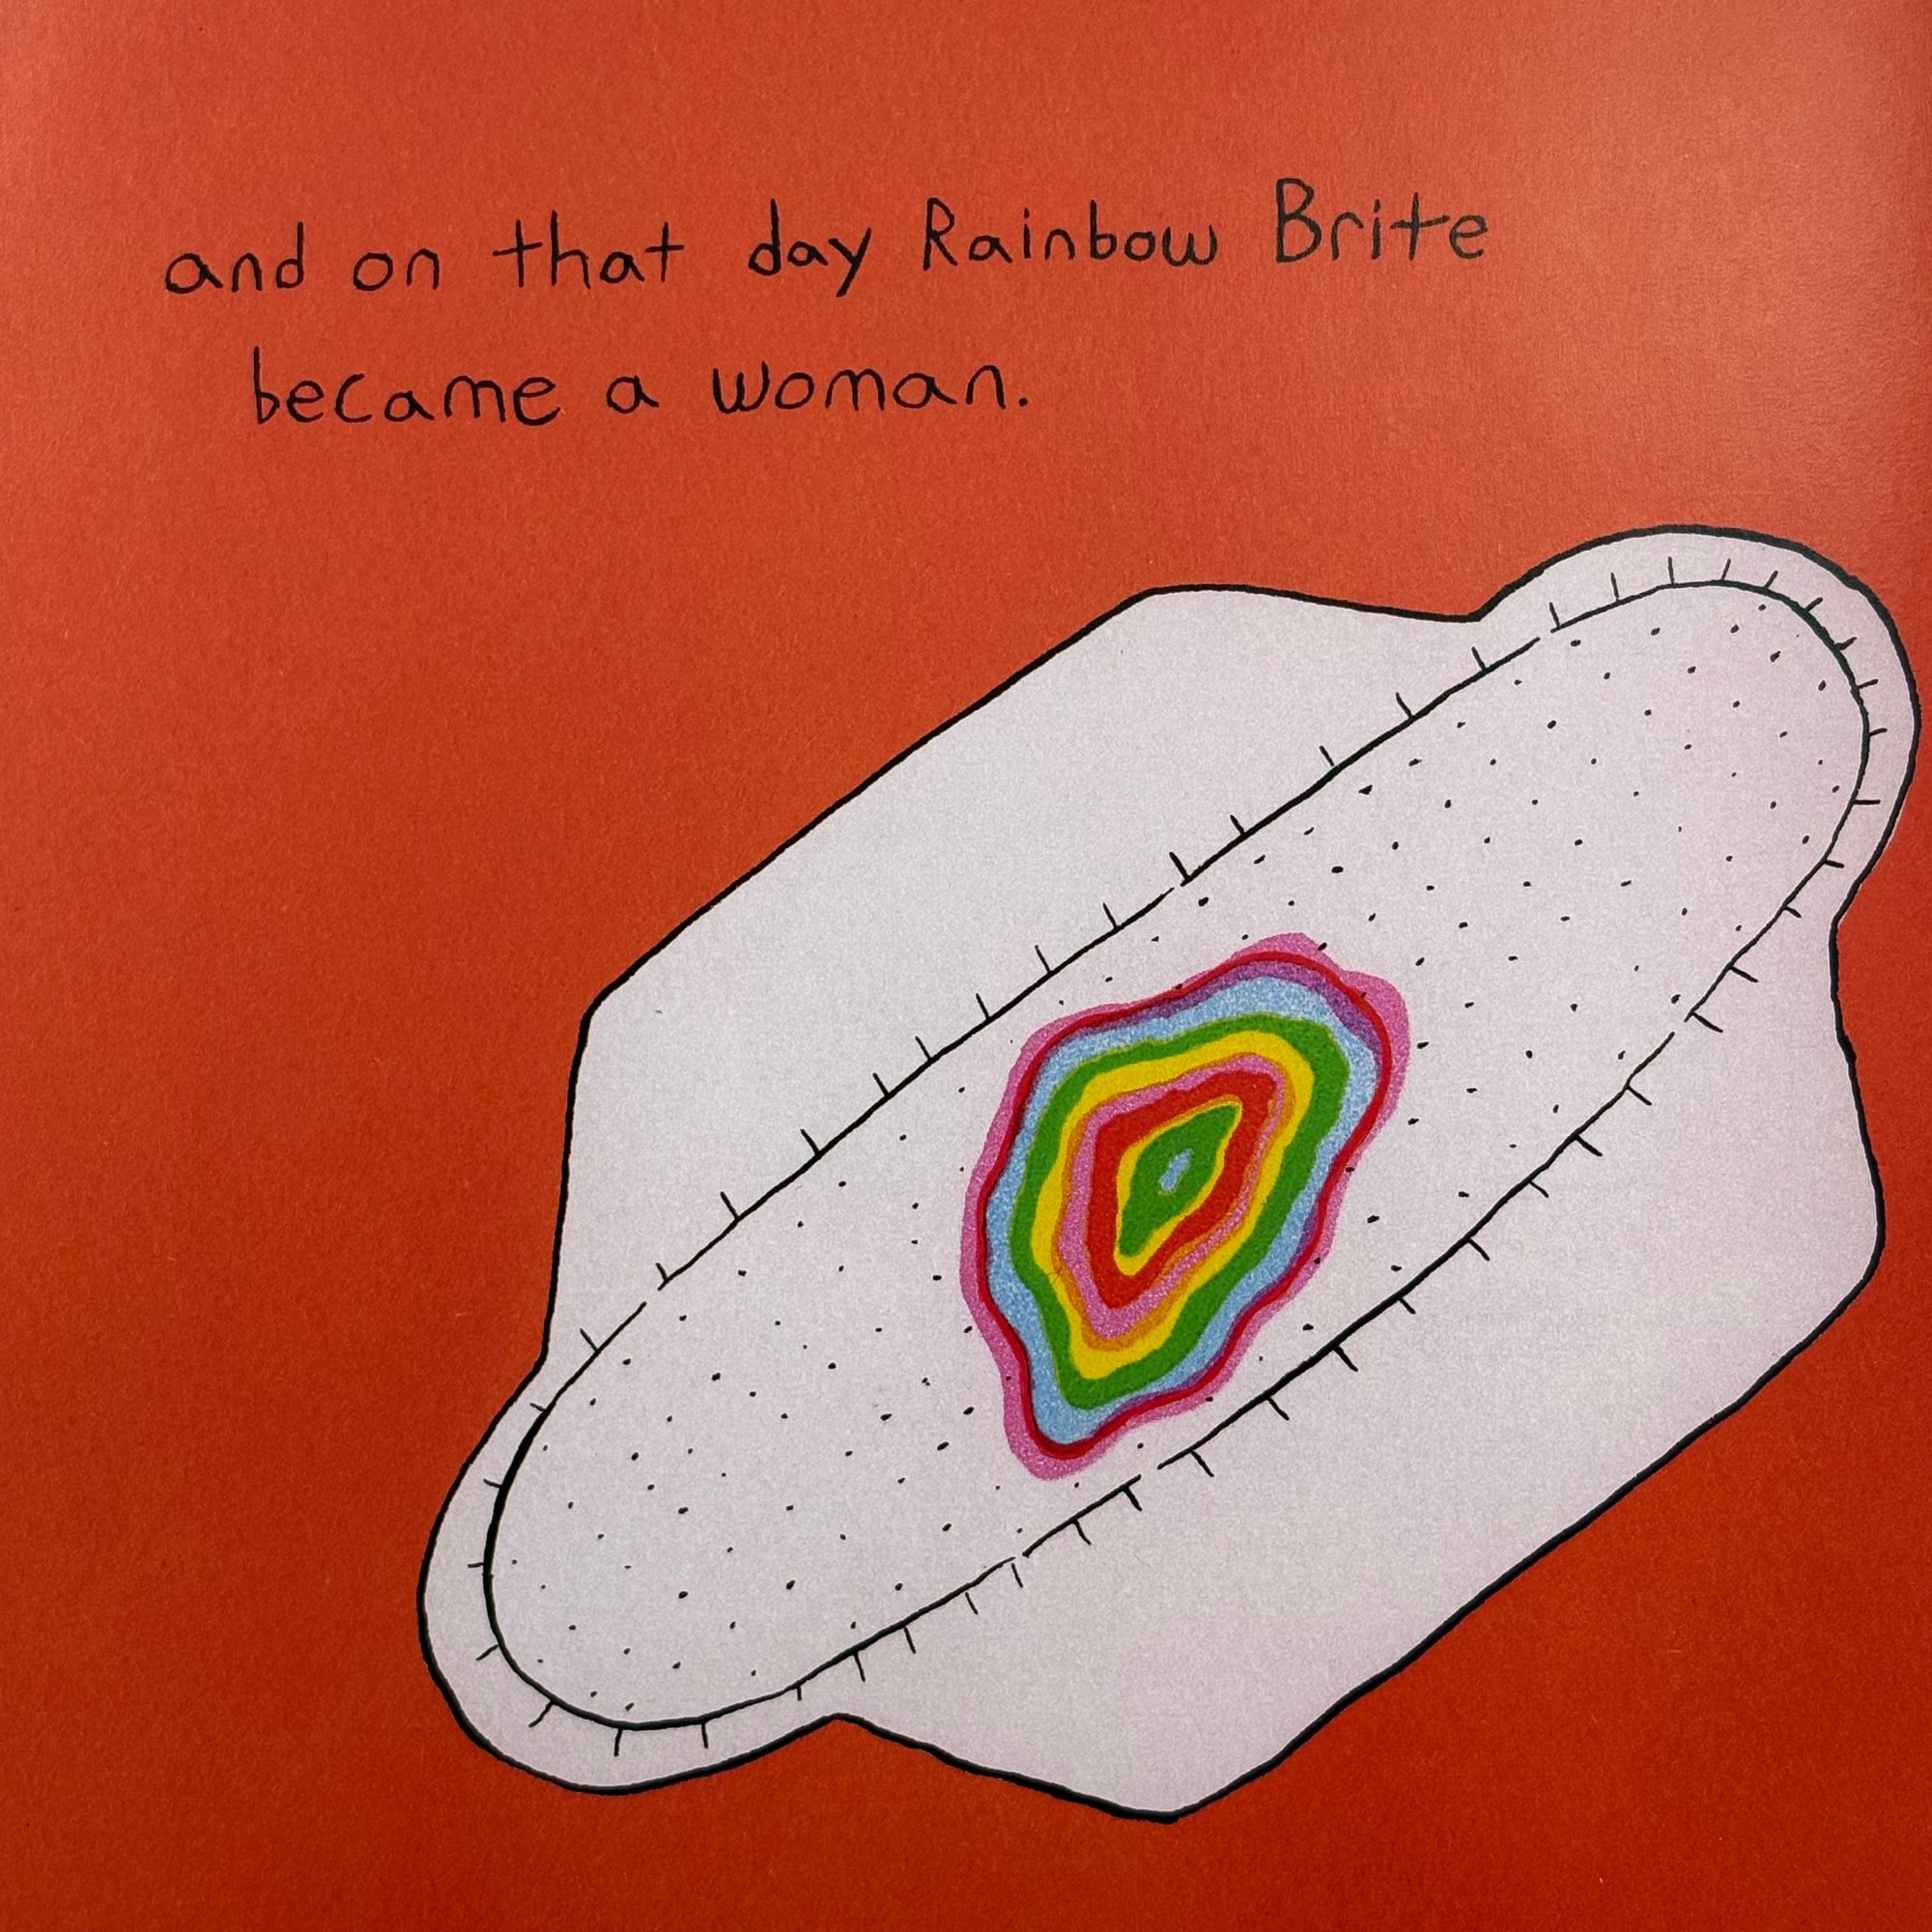 and on that day Rainbow Brite
became a woman.